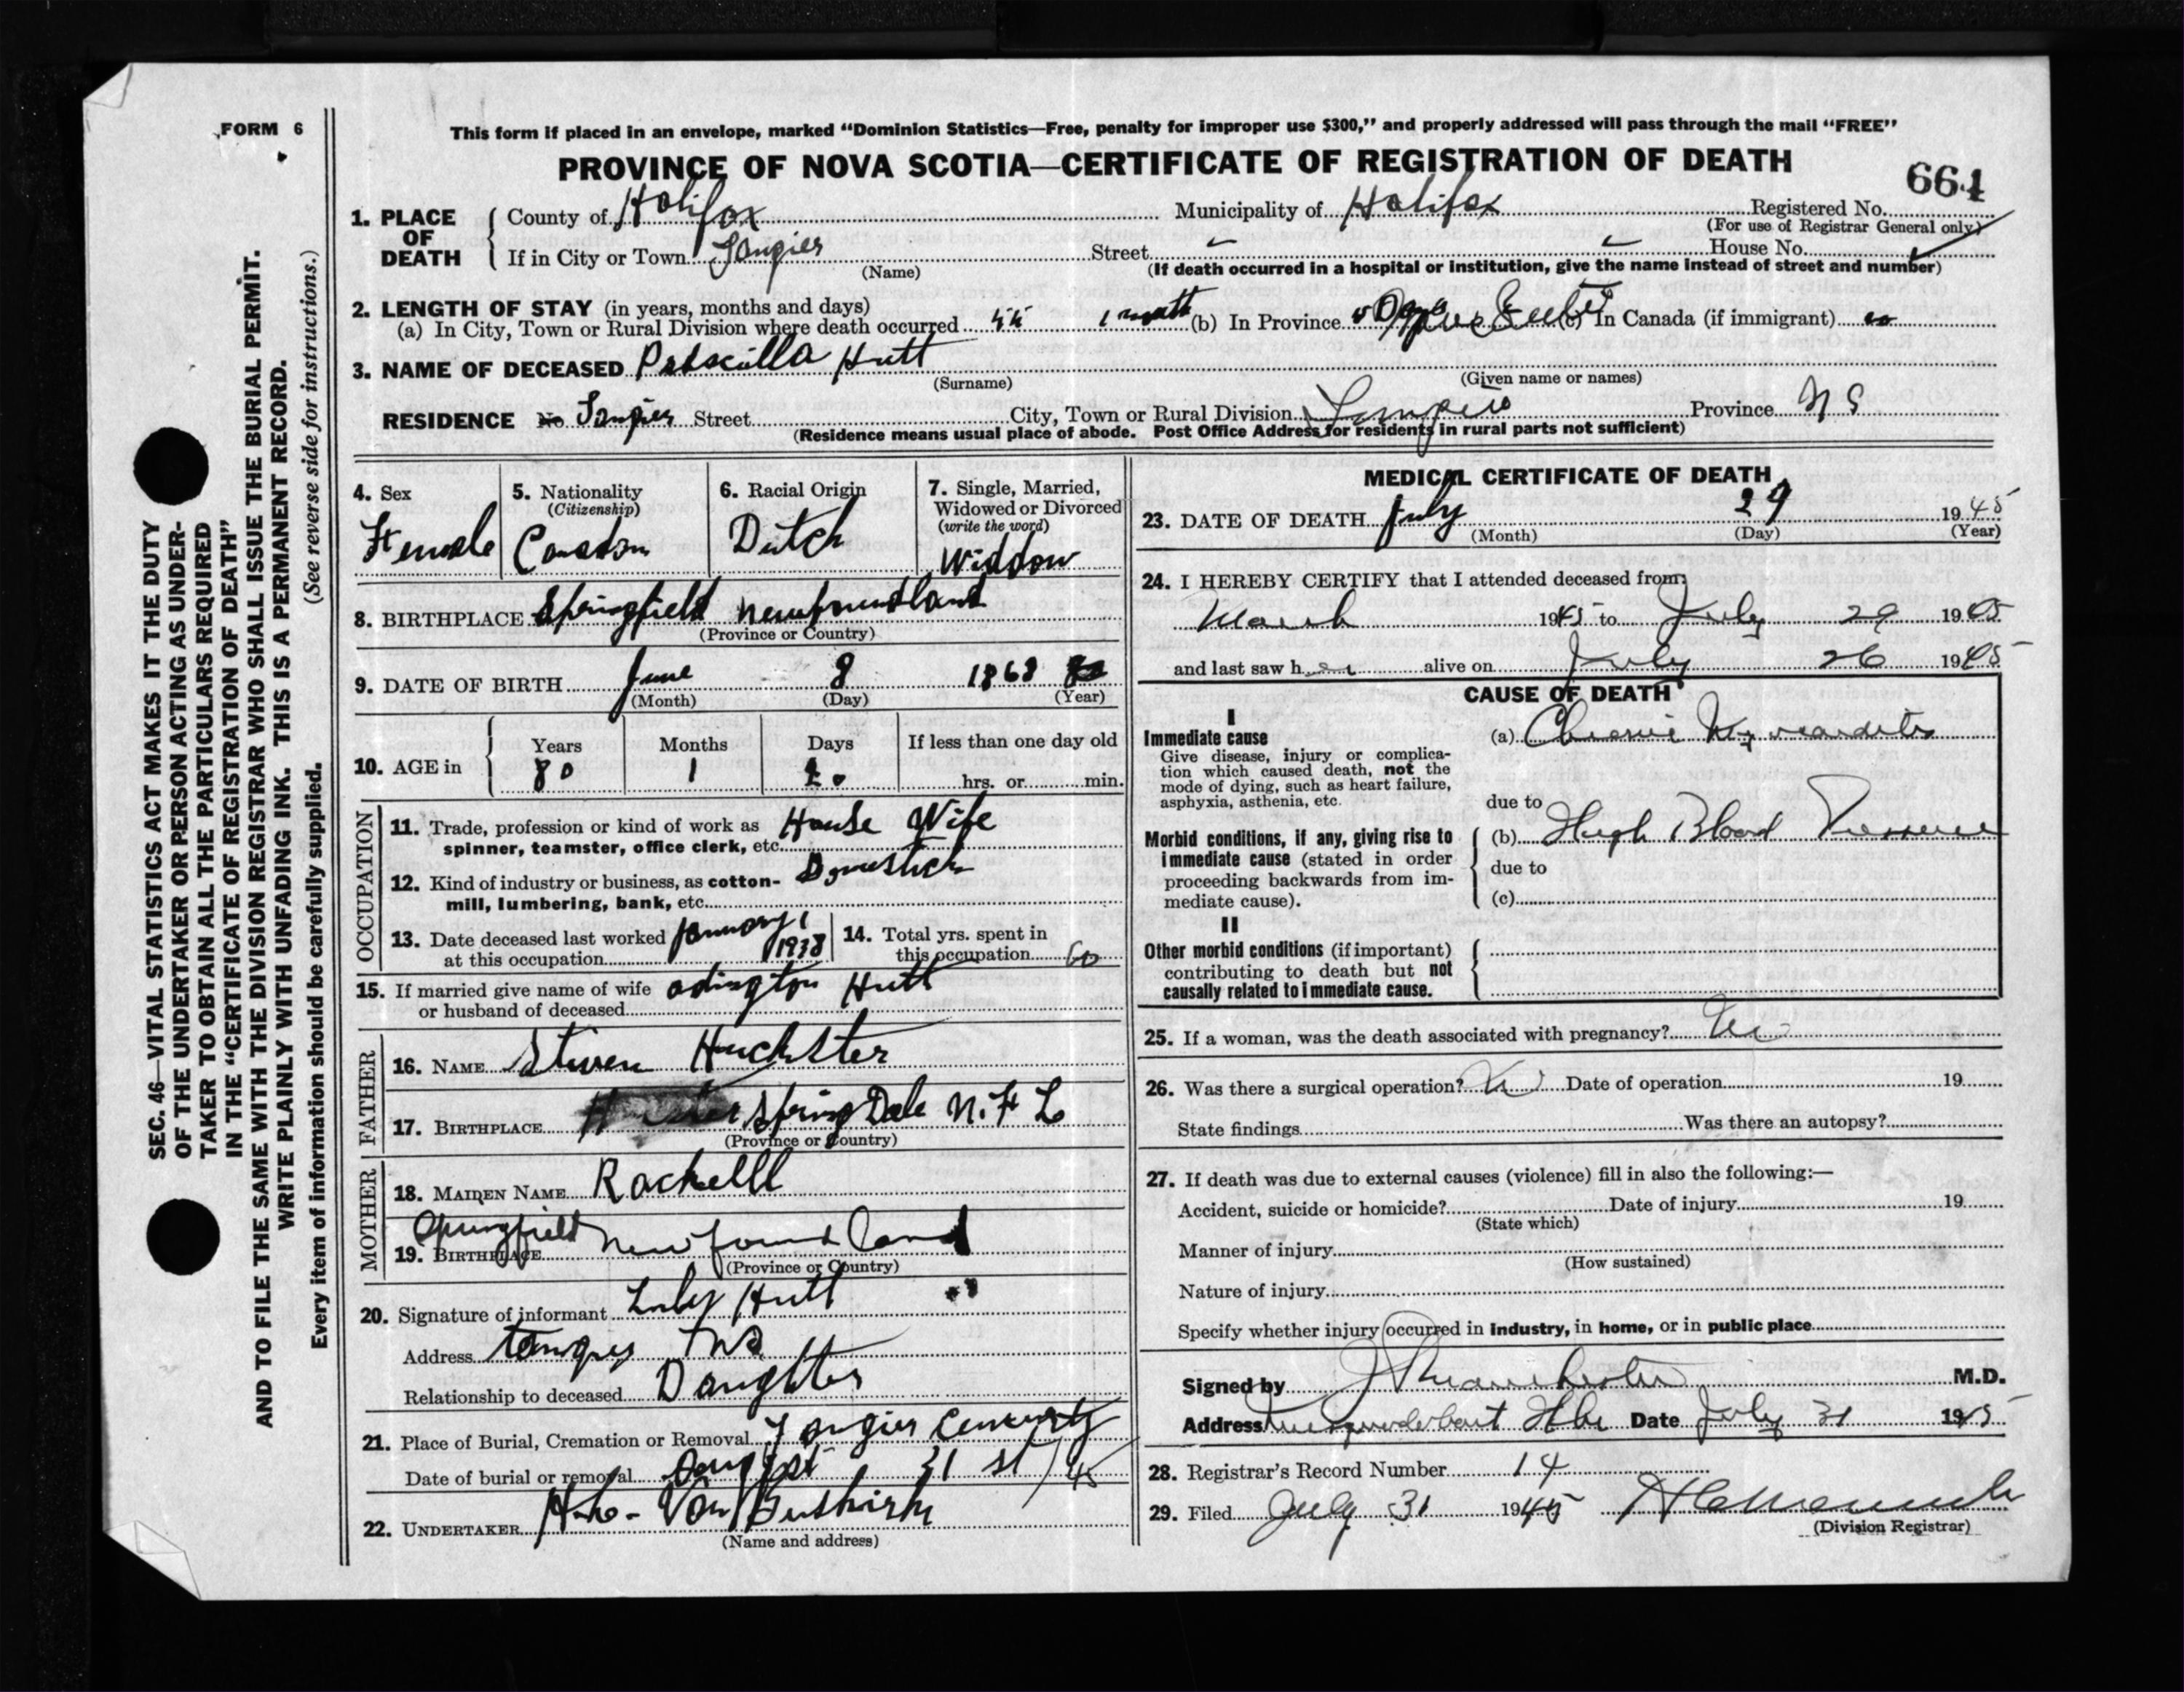 FORM 6
This form if placed in an envelope, marked "Dominion Statistics—Free, penalty for improper use $300," and properly addressed will pass through the mail "FREE"
PROVINCE OF NOVA SCOTIA—CERTIFICATE OF REGISTRATION OF DEATH
664
1. PLACE OF DEATH
County of Halifax Municipality of Halifax Registered No.
(For use of Registrar General only)
If in City or Town Tangier Street House No.
(Name) (If death occurred in a hospital or institution, give the name instead of street and number)
2. LENGTH OF STAY (in years, months and days)
(a) In City, Town or Rural Division where death occurred 1 month (b) In Province (c) In Canada (if immigrant)
3. NAME OF DECEASED Prescilla Hutt
(Surname) (Given name or names)
RESIDENCE No Tangier Street City, Town or Rural Division Tangier Province N S
(Residence means usual place of abode. Post Office Address for residents in rural parts not sufficient)
4. Sex
Female
5. Nationality
(Citizenship)
6. Racial Origin
Dutch
7. Single, Married,
Widowed or Divorced
(write the word)
Widdow
8. BIRTHPLACE Springfield Newfoundland
(Province or Country)
9. DATE OF BIRTH June 8 1868
(Month) (Day) (Year)
10. AGE in
Years Months Days If less than one day old
80 1 hrs. or min.
OCCUPATION
11. Trade, profession or kind of work as House Wife
spinner, teamster, office clerk, etc.
12. Kind of industry or business, as cotton- Domestick
mill, lumbering, bank, etc.
13. Date deceased last worked January 1
at this occupation 1938
14. Total yrs. spent in
this occupation 60
15. If married give name of wife adington Hutt
or husband of deceased
FATHER
16. NAME Stiven Huckster
17. BIRTHPLACE Spring Dale N.F L
(Province or Country)
MOTHER
18. MAIDEN NAME Rachelll
Springfield
19. BIRTHPLACE Newfoundland
(Province or Country)
20. Signature of informant Luly Hutt
Address
Relationship to deceased Daughter
21. Place of Burial, Cremation or Removal Tangier
Date of burial or removal 31 st / 45
22. UNDERTAKER Van Buskirk
(Name and address)
MEDICAL CERTIFICATE OF DEATH
23. DATE OF DEATH July 29 1945
(Month) (Day) (Year)
24. I HEREBY CERTIFY that I attended deceased from
March 1945 to July 29 1945
and last saw her alive on July 26 1945
CAUSE OF DEATH
I
Immediate cause
Give disease, injury or complica-
tion which caused death, not the
mode of dying, such as heart failure,
asphyxia, asthenia, etc.
(a) Chronic Myocarditis
due to
Morbid conditions, if any, giving rise to
immediate cause (stated in order
proceeding backwards from im-
mediate cause).
(b) High Blood Pressure
due to
(c)
II
Other morbid conditions (if important)
contributing to death but not
causally related to immediate cause.
25. If a woman, was the death associated with pregnancy? No
26. Was there a surgical operation? No Date of operation 19
State findings Was there an autopsy?
27. If death was due to external causes (violence) fill in also the following:—
Accident, suicide or homicide? Date of injury 19
(State which)
Manner of injury
(How sustained)
Nature of injury
Specify whether injury occurred in industry, in home, or in public place
Signed by M.D.
Address Musquodoboit Hbr Date July 31 1945
28. Registrar's Record Number 14
29. Filed July 31 1945
(Division Registrar)
SEC. 46—VITAL STATISTICS ACT MAKES IT THE DUTY
OF THE UNDERTAKER OR PERSON ACTING AS UNDER-
TAKER TO OBTAIN ALL THE PARTICULARS REQUIRED
IN THE "CERTIFICATE OF REGISTRATION OF DEATH"
AND TO FILE THE SAME WITH THE DIVISION REGISTRAR WHO SHALL ISSUE THE BURIAL PERMIT.
WRITE PLAINLY WITH UNFADING INK. THIS IS A PERMANENT RECORD.
Every item of information should be carefully supplied. (See reverse side for instructions.)